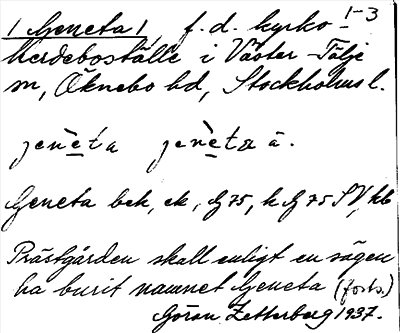 1-3
/ Geneta /, f.d. kyrko-
herdeboställe i Väster-Tälje
sn, Öknebo hd, Stockholms l.
jenèta jenèta ä.
Geneta bek, ek, G 75, k G 75 SV, kb
Prästgården skall enligt en sägen
ha burit namnet Geneta (forts.)
Göran Zetterberg 1937.